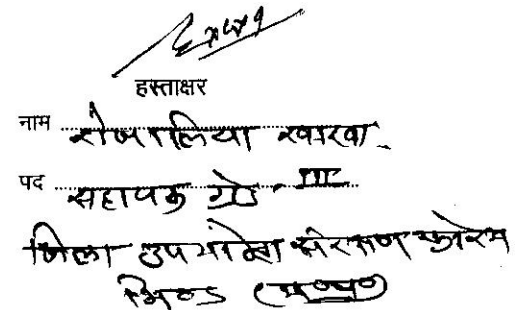 हस्ताक्षर
नाम रोजालिया खाखा
पद सहायक ग्रेड III
जिला उपभोक्ता संरक्षण फोरम
भिण्ड (म०प्र०)